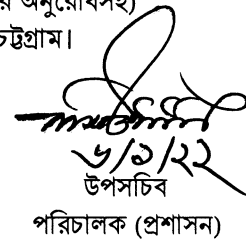 র অনুরোধসহ)
চট্টগ্রাম।
৬/১/২২
উপসচিব
পরিচালক (প্রশাসন)